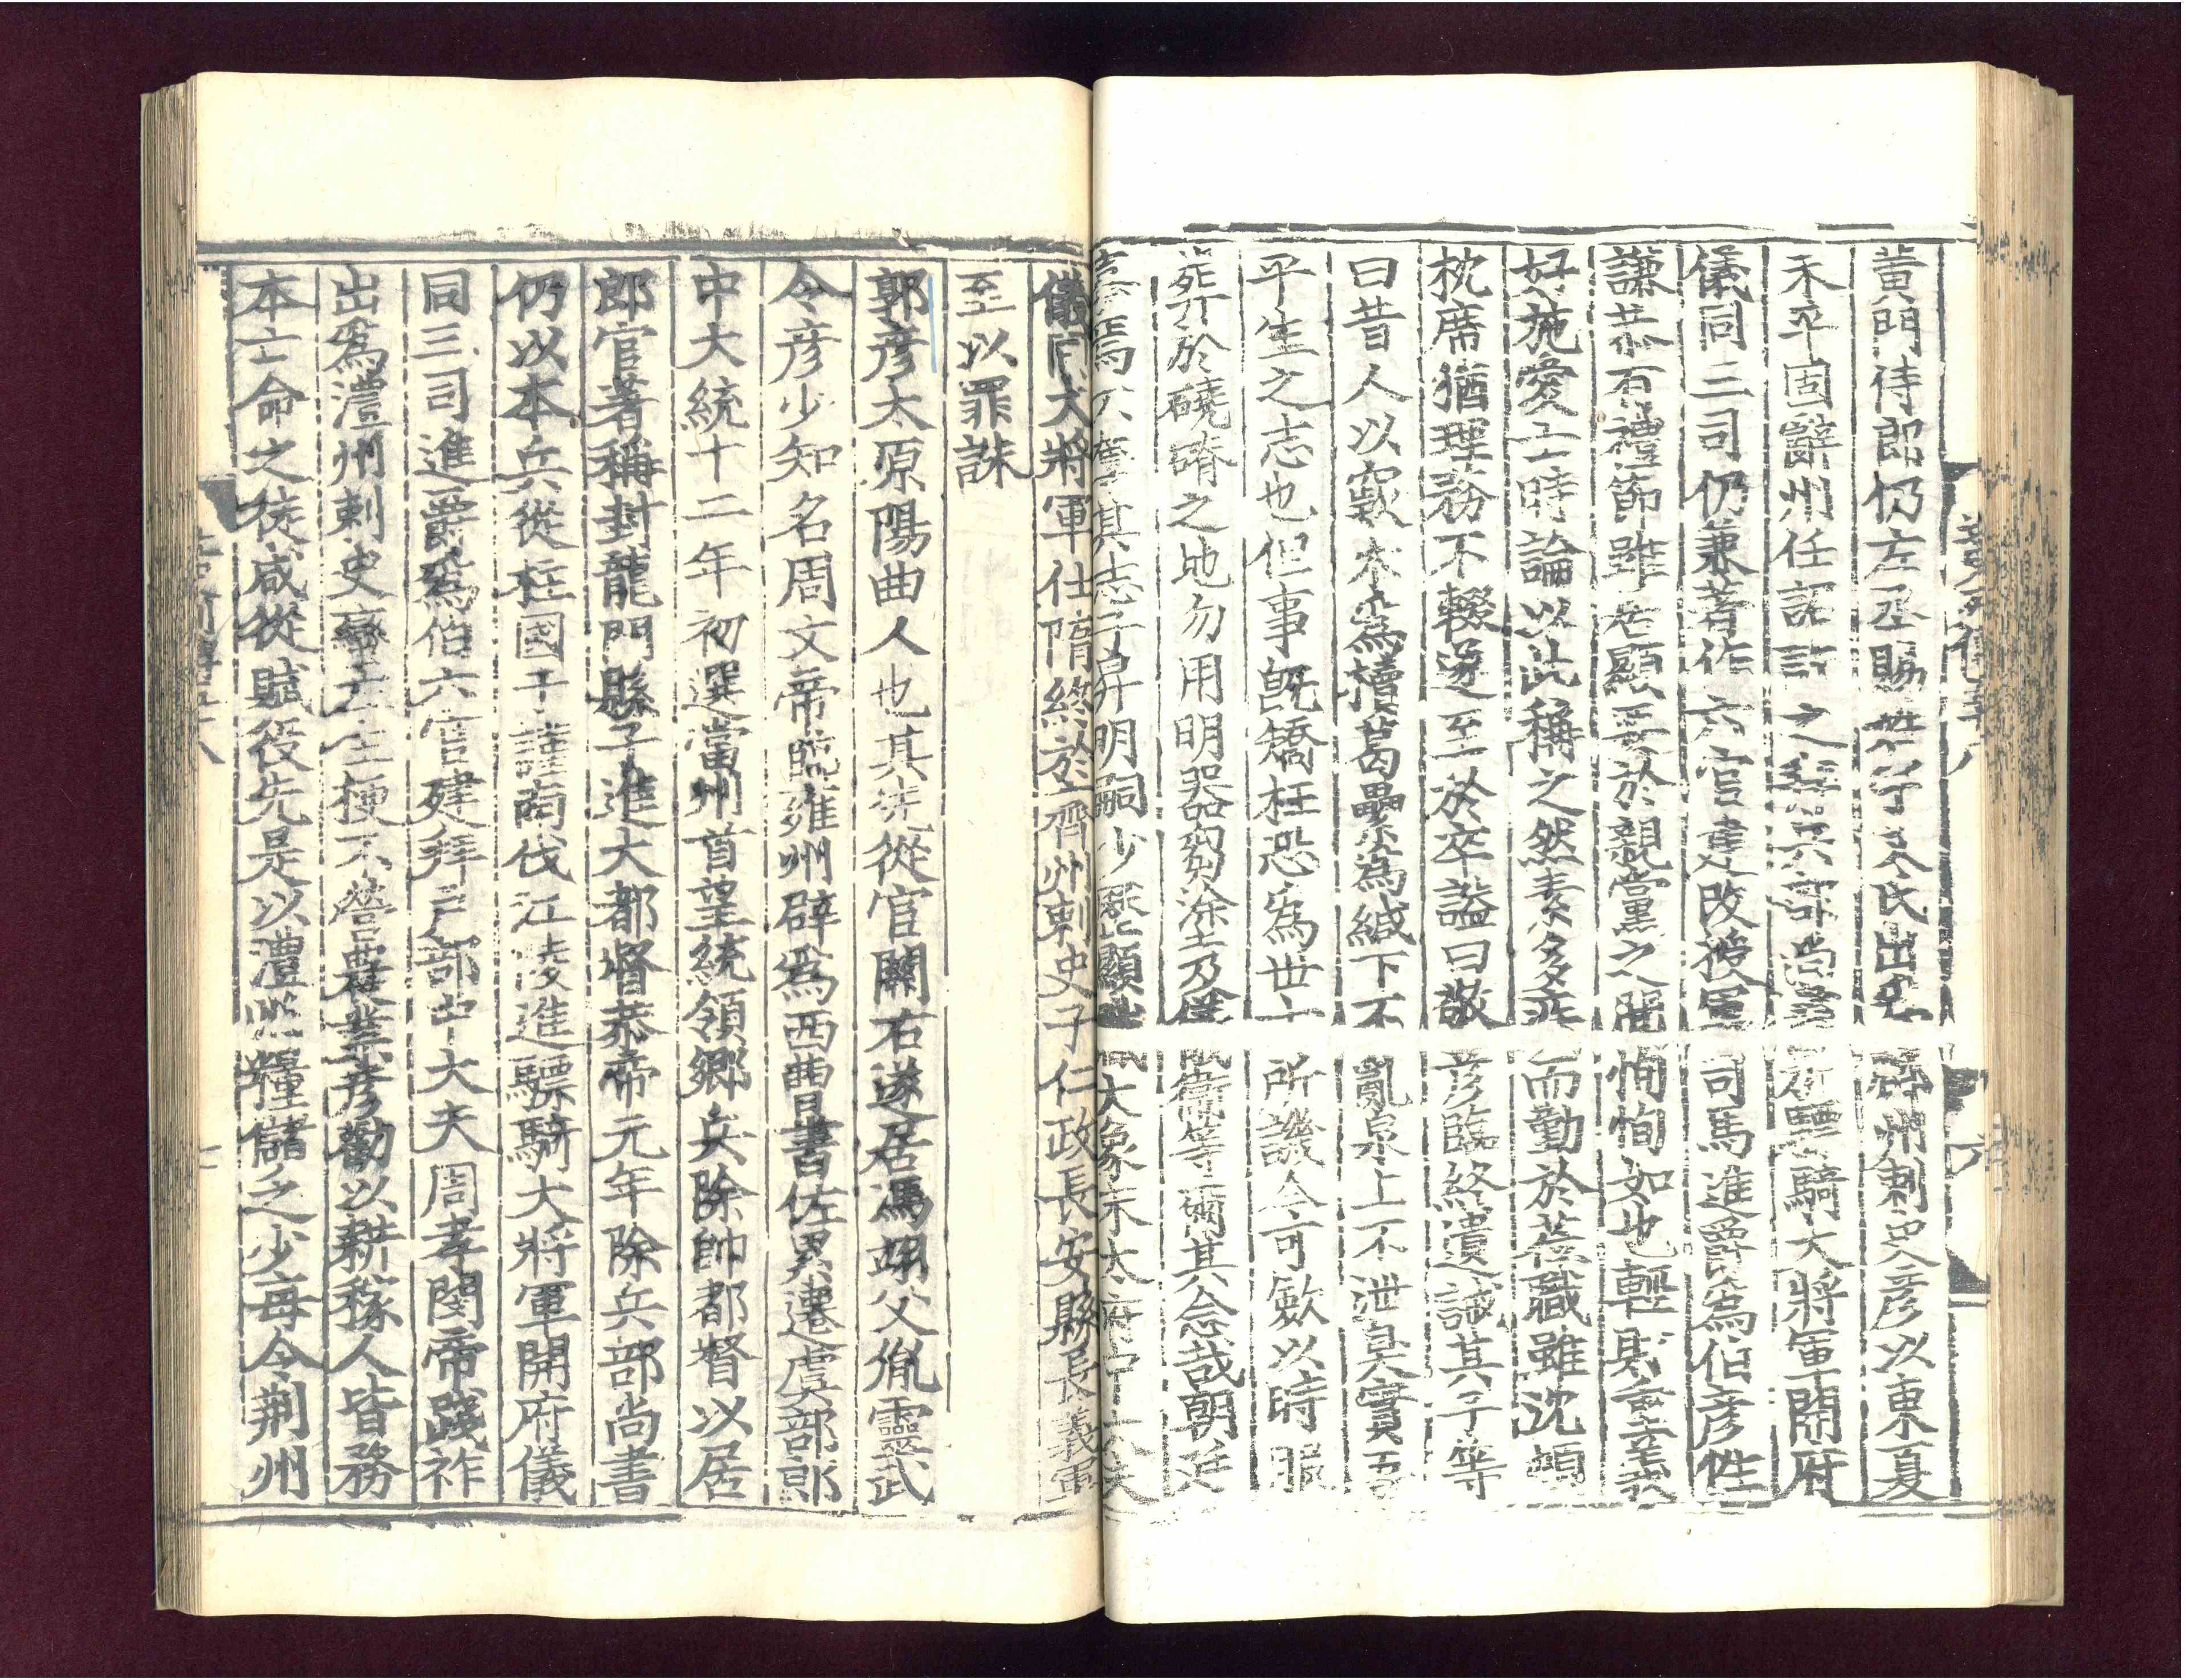 黃門侍郎仍左丞賜姓宇文氏出爲鄜州刺史彥以東夏
未平固辭州任詔許之拜兵部尚書加驃騎大將軍開府
儀同三司仍兼著作六官建改授軍司馬進爵爲伯彥性
謙恭有禮節雖居顯要於親黨之閒恂恂如也輕財重義
好施愛士時論以此稱之然素多疾而勤於莅職雖沈頓
枕席猶理務不輟遂至於卒謚曰敬彥臨終遺誡其子等
曰昔人以窾木爲櫝葛虆爲緘下不亂泉上不泄臭實吾
平生之志也但事旣矯枉恐爲世士所譏今可斂以時服
葬於磽瘠之地勿用明器芻塗及儀衞等爾其念哉朝廷
嘉焉不奪其志子昇明嗣少歷顯職大象末太府中大夫
儀同大將軍仕隋終於齊州刺史子仁政長安縣長義軍
至以罪誅
郭彥太原陽曲人也其先從官關右遂居馮翊父胤靈武
令彥少知名周文帝臨雍州辟爲西曹書佐累遷虞部郎
中大統十二年初選當州首望統領鄉兵除帥都督以居
郎官著稱封龍門縣子進大都督恭帝元年除兵部尚書
仍以本兵從柱國于謹南伐江陵進驃騎大將軍開府儀
同三司進爵爲伯六官建拜戶部中大夫周孝閔帝踐祚
出爲澧州刺史蠻左生梗不營農業彥勸以耕稼人皆務
本亡命之徒咸從賦役先是以澧州糧儲乏少每令荊州